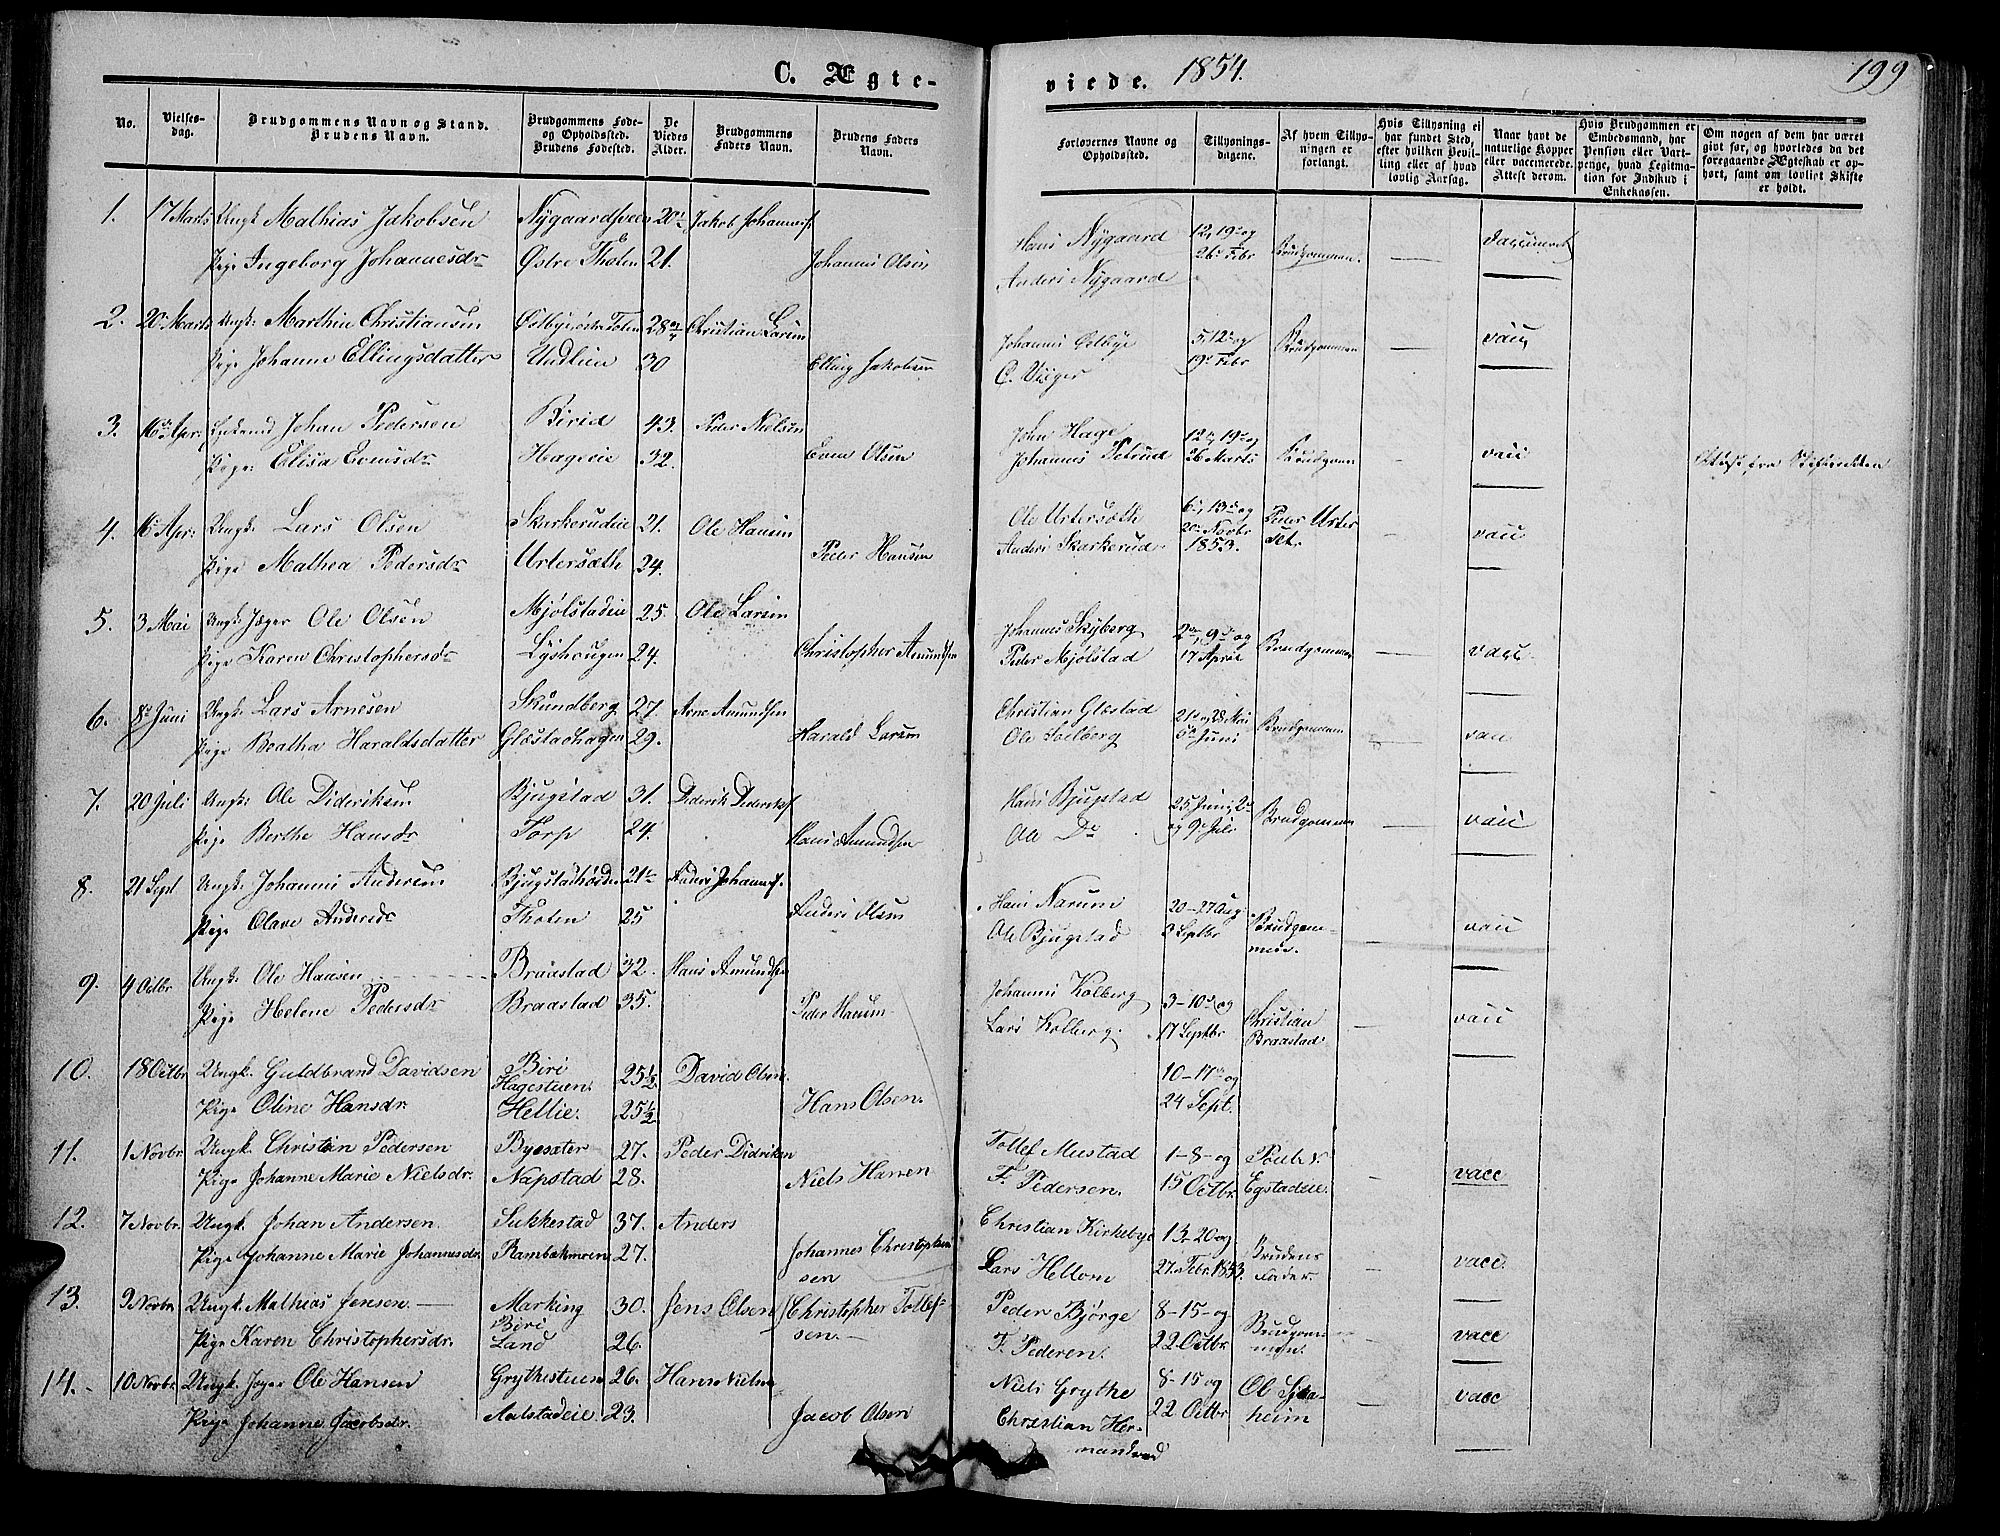 C. Ægte-
viede. 1854. 199
No.
Vielses-
dag.
Brudgommens Navn og Stand.
Brudens Navn.
Brudgommens Føde-
og Opholdssted.
Brudens Fødested.
De
Viedes
Alder.
Brudgommens
Faders Navn.
Brudens Faders
Navn.
Forlovernes Navne og
Opholdssted.
Tillysnings-
dagene.
Af hvem Tillys-
ningen er
forlangt.
Hvis Tillysning ei
har fundet Sted,
efter hvilken Bevil-
ling eller af hvad
lovlig Aarsag.
Naar havt de
naturlige Kopper
eller vaccinerede.
Attest derom.
Hvis Brudgommen er
Embedsmand, har
Pension eller Vart-
penge, hvad Legitma-
tion for Indskud i
Enkekassen.
Om nogen af dem har været
givt før, og hvorledes da det
foregaaende Ægteskab er op-
hørt, samt om lovligt Skifte
er holdt.
1. 17 Marts Ungk. Mathias Jakobsen Jakob Johannesf
Pige Ingeborg Johannesdr Østre Thoten 21. Johannes Olsen
Hans Nygaard 12, 19 og
26 Febr Brudgommen. vaccineret
Anders Nygaard
2. 20 Marts Ungk. Marthin Christiansen Østbye østre Toten 28 Christian Larsen
Pige Johanne Ellingsdatter Undlien 30 Elling Jakobsen
Johannes 5, 12 og
19 Febr Brudgommen vacc
3. 16 Apr. Johan Pedersen Birid 43. Peder Nielsen
Pige: Elisa Evensdr Hageeie 32. Even Olsen
John Hage 12, 19 og
Johannes 26 Marts Brudgom vacc
4. 16 Apr: Ungk. Lars Olsen Skarkerudeie 21. Ole Hansen
Pige Mathea Pedersdr Urtersæth 24. Peder Hansen
Ole Urtersæth 6, 13 og
20 Novbr
1853. Peder Urter
set. vacc
Anders Skarkerud
5. 3 Mai Ungk. Jæger Ole Olsen Mjølstadeie 25. Ole Larsen
Pige Karen Christophersdr Lyshaugen 24. Christopher Amundsen
Johannes Skyberg 2, 9 og
Peder Mjølstad 17 April Brudgommen vacc.
6. 8 Juni Ungk. Lars Arnesen Skundberg 27. Arne Amundsen
Pige Beatha Haraldsdatter Gløstadhagen 29. Harald Larsen
Christian Gløstad 21 og 28 Mai
Ole 5 Juni Brudgommen vacc
7. 20 Juli Ungk: Ole Dideriksen Bjugstad 31. Diderik Dideriksf
Pige Berthe Hansdr Torp 24. Hans Amundsen
Hans Bjugstad 25 Juni, 2
Ole Do og 9 Juli Brudgommen vacc
8. 21 Sept Ungk. Johannes Andersen 21 Anders Johannesf.
Pige Olave Andersdr Thoten 25 Anders Olsen
Hans Narum 20-27 Aug
Ole Bjugstad 3 Septbr Brudgom-
men. vacc
9. 4 Octbr. Ungk. Ole Hansen Braastad 32. Hans Amundsen
Pige Helene Pedersdr Braastad 35. Peder Hansen
Johannes Kolberg 3-10 og
Lars Kolberg. 17 Septbr Christian
Braastad. vacc
10. 18 Octbr Ungk. Guldbrand Davidsen Biri
Hagestuen 25½ David Olsen.
Pige Oline Hansdr. Hellie. 25½ Hans Olsen.
10-17 og
24 Sept.
11. 1 Novbr. Ungk. Christian Pedersen Byesæter 27. Peder Didriksen
Pige Johanne Marie Nielsdr. Napstad 28. Niels Hansen
Tollef Mustad 1-8- og
F. Pedersen. 15 Octbr. Egstadeie. vacc
12. 7 Novbr. Ungk. Johan Andersen. Sukkestad 37. Anders
Pige Johanne Marie Johannesdr. Rambekmoen 27. Johannes Christophen
sen
Christian Kirkebye 13-20 og
Lars Hellom 27 Febr. 1853. Brudens
Fader. vacc.
13. 9 Novbr Ungk. Mathias Jensen. Marking
Biri 30. Jens Olsen Christopher Tollef-
sen.
Pige Karen Christophersdr. Land 26.
Peder Bjørge 8-15- og
F. Pedersen. 22 Octbr. Brudgom-
men. vacc
14. 10 Novbr. Ungk. Jæger Ole Hansen Grythestuen 26. Hans Nielsen
Pige Johanne Jacobsdr. Aalstadeie 23. Jacob Olsen
Niels Grythe 8-15 og
Christian Her- 22 Octbr
heim vacc